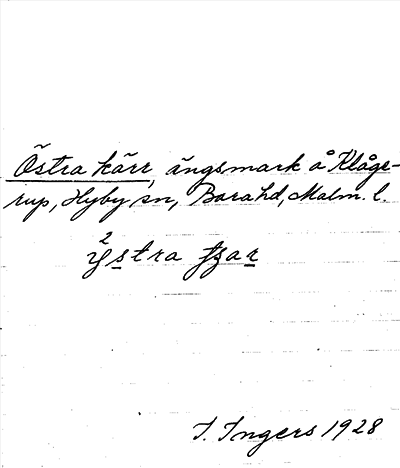 Östra kärr, ängsmark å Klåge-
rup, Hyby sn, Bara hd, Malm. l.
²ystra tʒar
I. Ingers 1928